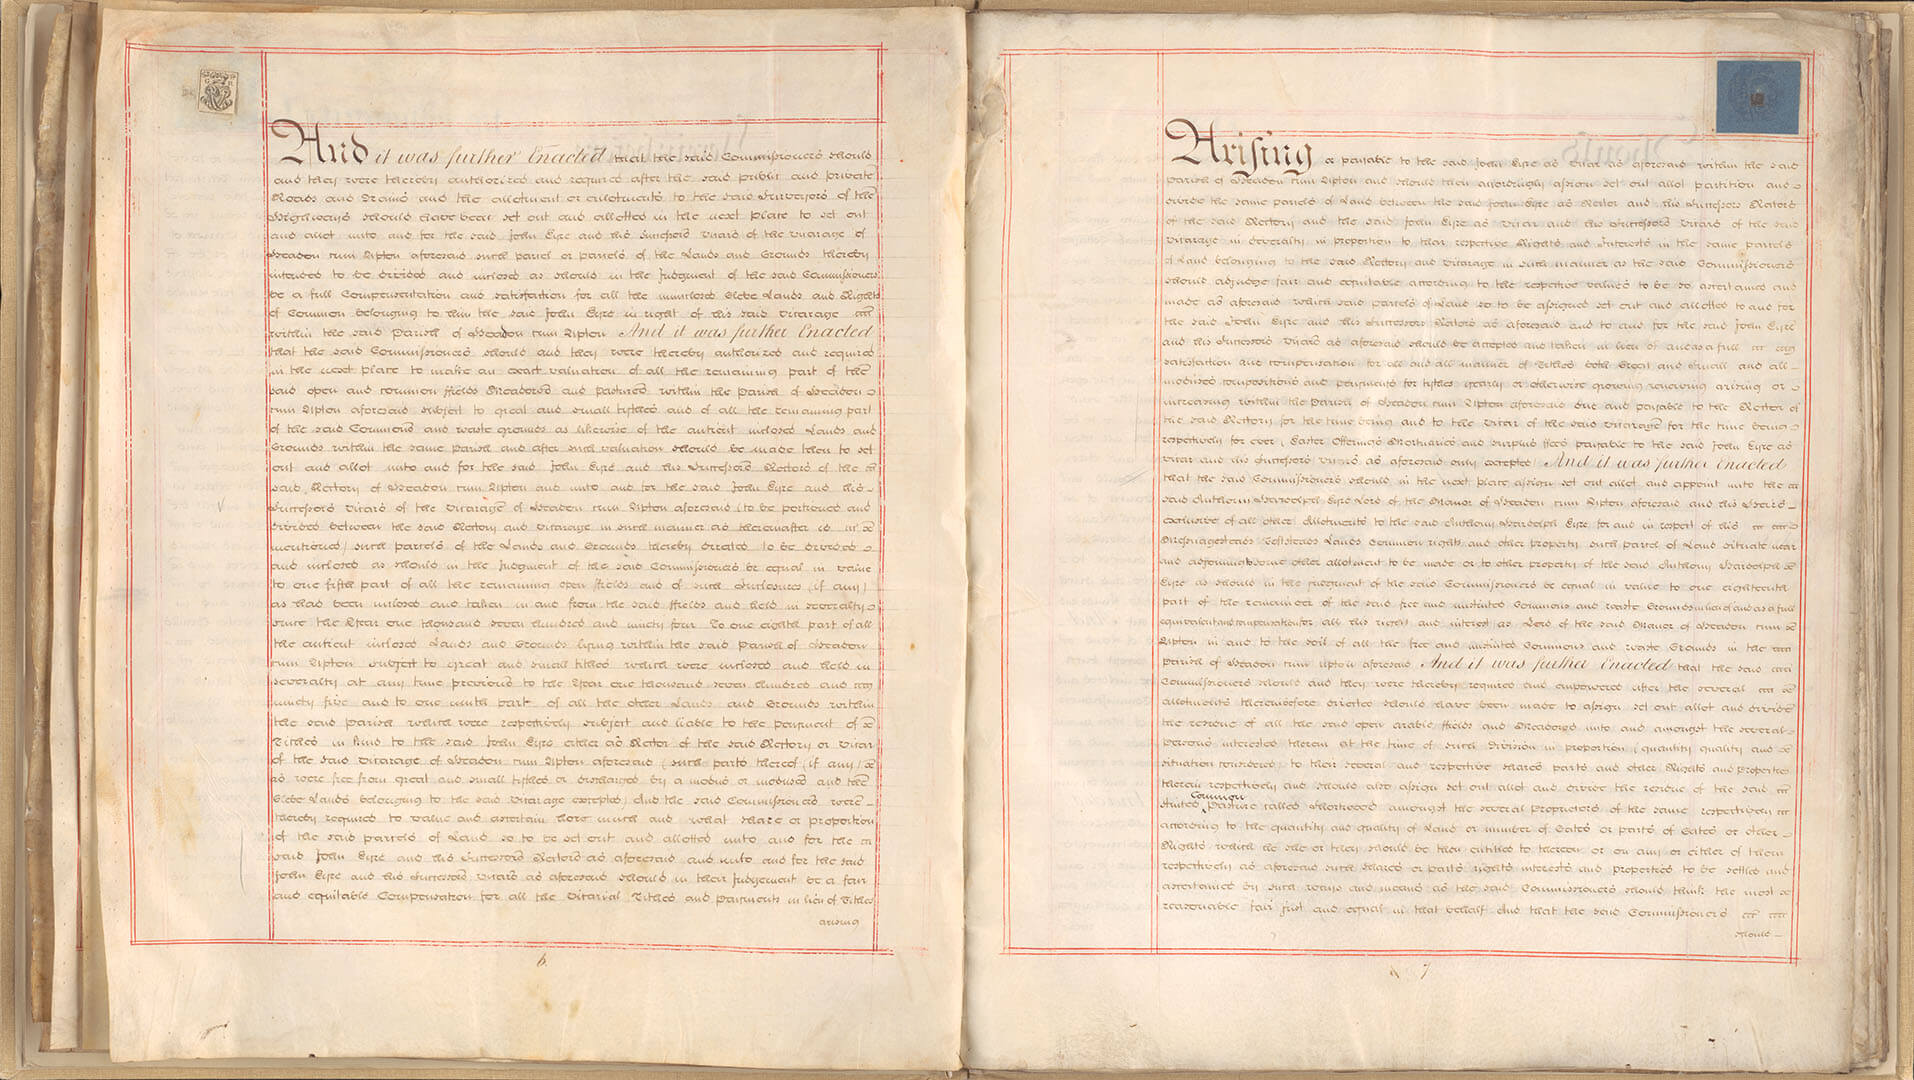 And it was further Enacted that the said Commissioners should
and they were thereby authorized and required after the said public and private
Roads and Drains and the allotment or allotments to the said Surveyors of the
Highways should have been set out and allotted in the next place to set out
and allot unto and for the said John Eyre and his Successors Vicars of the Vicarage of
Headon cum Upton aforesaid such parcel or parcels of the Lands and Grounds thereby
intended to be divided and inclosed as should in the Judgment of the said Commissioners
be a full Compensation and satisfaction for all the uninclosed Glebe Lands and Rights
of Common belonging to him the said John Eyre in right of his said Vicarage
within the said Parish of Headon cum Upton And it was further Enacted
that the said Commissioners should and they were thereby authorized and required
in the next place to make an exact valuation of all the remaining part of the
said open and common ffields Meadows and Pastures within the Parish of Headon
cum Upton aforesaid subject to great and small tythes and of all the remaining part
of the said Commons and waste grounds as likewise of the antient inclosed Lands and
Grounds within the same Parish and after such valuation should be made then to set
out and allot unto and for the said John Eyre and his Successors Rectors of the
said Rectory of Headon cum Upton and unto and for the said John Eyre and his
Successors Vicars of the Vicarage of Headon cum Upton aforesaid (to be portioned and
divided between the said Rectory and Vicarage in such manner as thereinafter is
mentioned) such parcels of the Lands and Grounds thereby directed to be divided
and inclosed as should in the Judgment of the said Commissioners be equal in value
to one fifth part of all the remaining open ffields and of such Inclosures (if any)
as had been inclosed and taken in and from the said ffields and held in severalty
since the Year one thousand seven hundred and ninety four To one eighth part of all
the antient inclosed Lands and Grounds lying within the said Parish of Headon
cum Upton subject to Great and small tithes which were inclosed and held in
severalty at any time previous to the Year one thousand seven hundred and
ninety five and to one ninth part of all the other Lands and Grounds within
the said Parish which were respectively subject and liable to the payment of
Tithes in kind to the said John Eyre either as Rector of the said Rectory or Vicar
of the said Vicarage of Headon cum Upton aforesaid (such parts thereof (if any)
as were free from great and small tythes or discharged by a modus or moduses and the
Glebe Lands belonging to the said Vicarage excepted) And the said Commissioners were
thereby required to value and ascertain how much and what share or proportion
of the said parcels of Land so to be set out and allotted unto and for the
said John Eyre and his Successors Rectors as aforesaid and unto and for the said
John Eyre and his Successors Vicars as aforesaid should in their Judgement be a fair
and equitable Compensation for all the Vicarial Tithes and payments in lieu of Tithes
arising
6
Arising or payable to the said John Eyre as Vicar as aforesaid within the said
Parish of Headon cum Upton and should then accordingly assign set out allot partition and
divide the same parcels of Land between the said John Eyre as Rector and his Successors Rectors
of the said Rectory and the said John Eyre as Vicar and his Successors Vicars of the said
Vicarage in severalty in proportion to their respective Rights and Interests in the same parcels
of Land belonging to the said Rectory and Vicarage in such manner as the said Commissioners
should adjudge fair and equitable according to the respective values to be so ascertained and
made as aforesaid which said parcels of Land so to be assigned set out and allotted to and for
the said John Eyre and his Successors Rectors as aforesaid and to and for the said John Eyre
and his Successors Vicars as aforesaid should be accepted and taken in lieu of and as a full
satisfaction and compensation for all and all manner of Tithes both Great and Small and all
moduses compositions and payments for tythes yearly or otherwise growing renewing arising or
increasing within the Parish of Headon cum Upton aforesaid due and payable to the Rector of
the said Rectory for the time being and to the Vicar of the said Vicarage for the time being
respectively for ever (Easter Offerings Mortuaries and surplice ffees payable to the said John Eyre as
Vicar and his Successors Vicars as aforesaid only excepted) And it was further Enacted
that the said Commissioners should in the next place assign set out allot and appoint unto the
said Anthony Hardolph Eyre Lord of the Manor of Headon cum Upton aforesaid and his Heirs
exclusive of all other Allotments to the said Anthony Hardolph Eyre for and in respect of his
Messuagesteads Toftsteads Lands Common rights and other property such parcel of Land situate near
and adjoining to some other allotment to be made or to other property of the said Anthony Hardolph
Eyre as should in the judgement of the said Commissioners be equal in value to one eighteenth
part of the remainder of the said free and unstinted Commons and waste Grounds in lieu of and as a full
equivalent and compensation for all his right and interest as Lord of the said Manor of Headon cum
Upton in and to the soil of all the free and unstinted Commons and waste Grounds in the
parish of Headon cum Upton aforesaid And it was further Enacted that the said
Commissioners should and they were thereby required and empowered after the several
allotments thereinbefore directed should have been made to assign set out allot and divide
the residue of all the said open arable ffields and Meadows unto and amongst the several
persons interested therein at the time of such division in proportion (quantity quality and
situation considered) to their several and respective shares parts and other Rights and properties
therein respectively and should also assign set out allot and divide the residue of the said
Common
stinted Pasture called amongst the several Proprietors of the same respectively
according to the quantity and quality of Land or number of Gates or parts of Gates or other
Rights which he she or they should be then entitled to thereon or on any or either of them
respectively as aforesaid such shares or parts rights interests and properties to be settled and
ascertained by such ways and means as the said Commissioners should think the most
reasonable fair just and equal in that behalf And that the said Commissioners
should
7